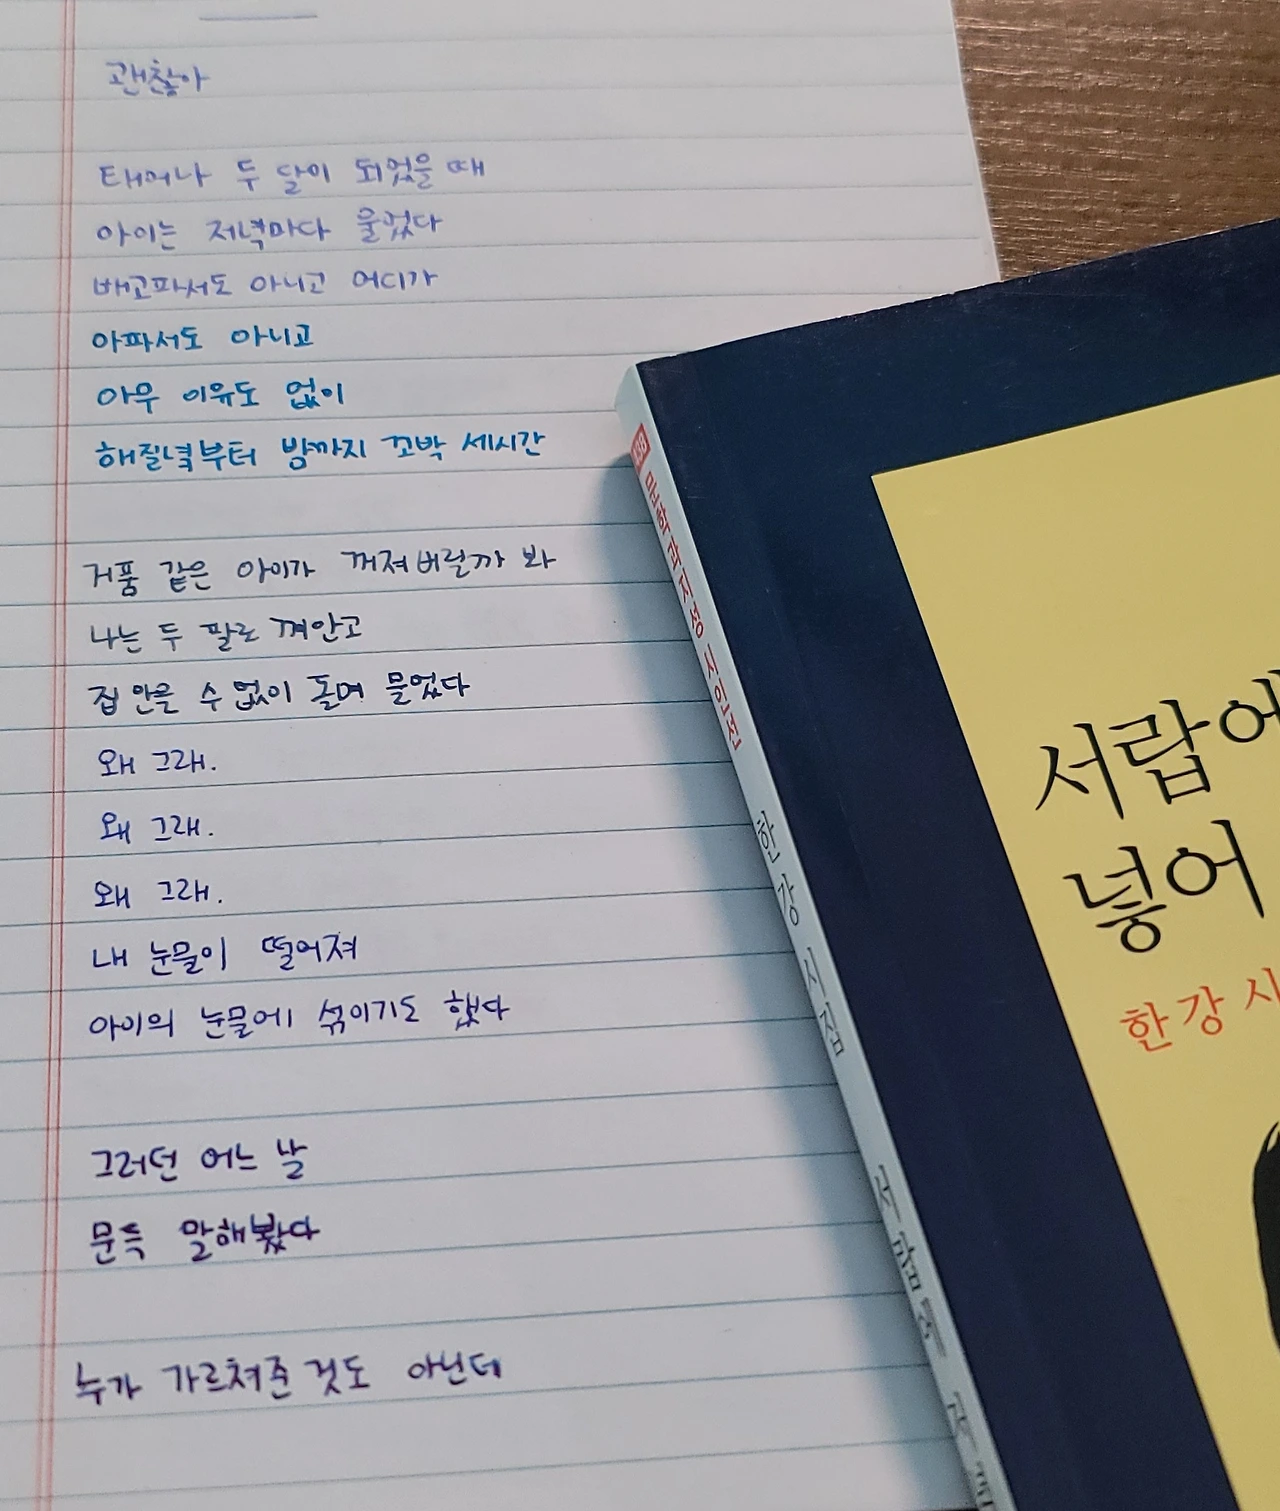 괜찮아
태어나 두 달이 되었을 때
아이는 저녁마다 울었다
배고파서도 아니고 어디가
아파서도 아니고
아무 이유도 없이
해질녘부터 밤까지 꼬박 세시간
거품 같은 아이가 꺼져버릴까 봐
나는 두 팔로 껴안고
집 안을 수 없이 돌며 물었다
왜 그래.
왜 그래.
왜 그래.
내 눈물이 떨어져
아이의 눈물에 섞이기도 했다
그러던 어느 날
문득 말해봤다
누가 가르쳐준 것도 아닌데
문학과지성 시인선
한강 시집
서랍에
넣어
한강 시